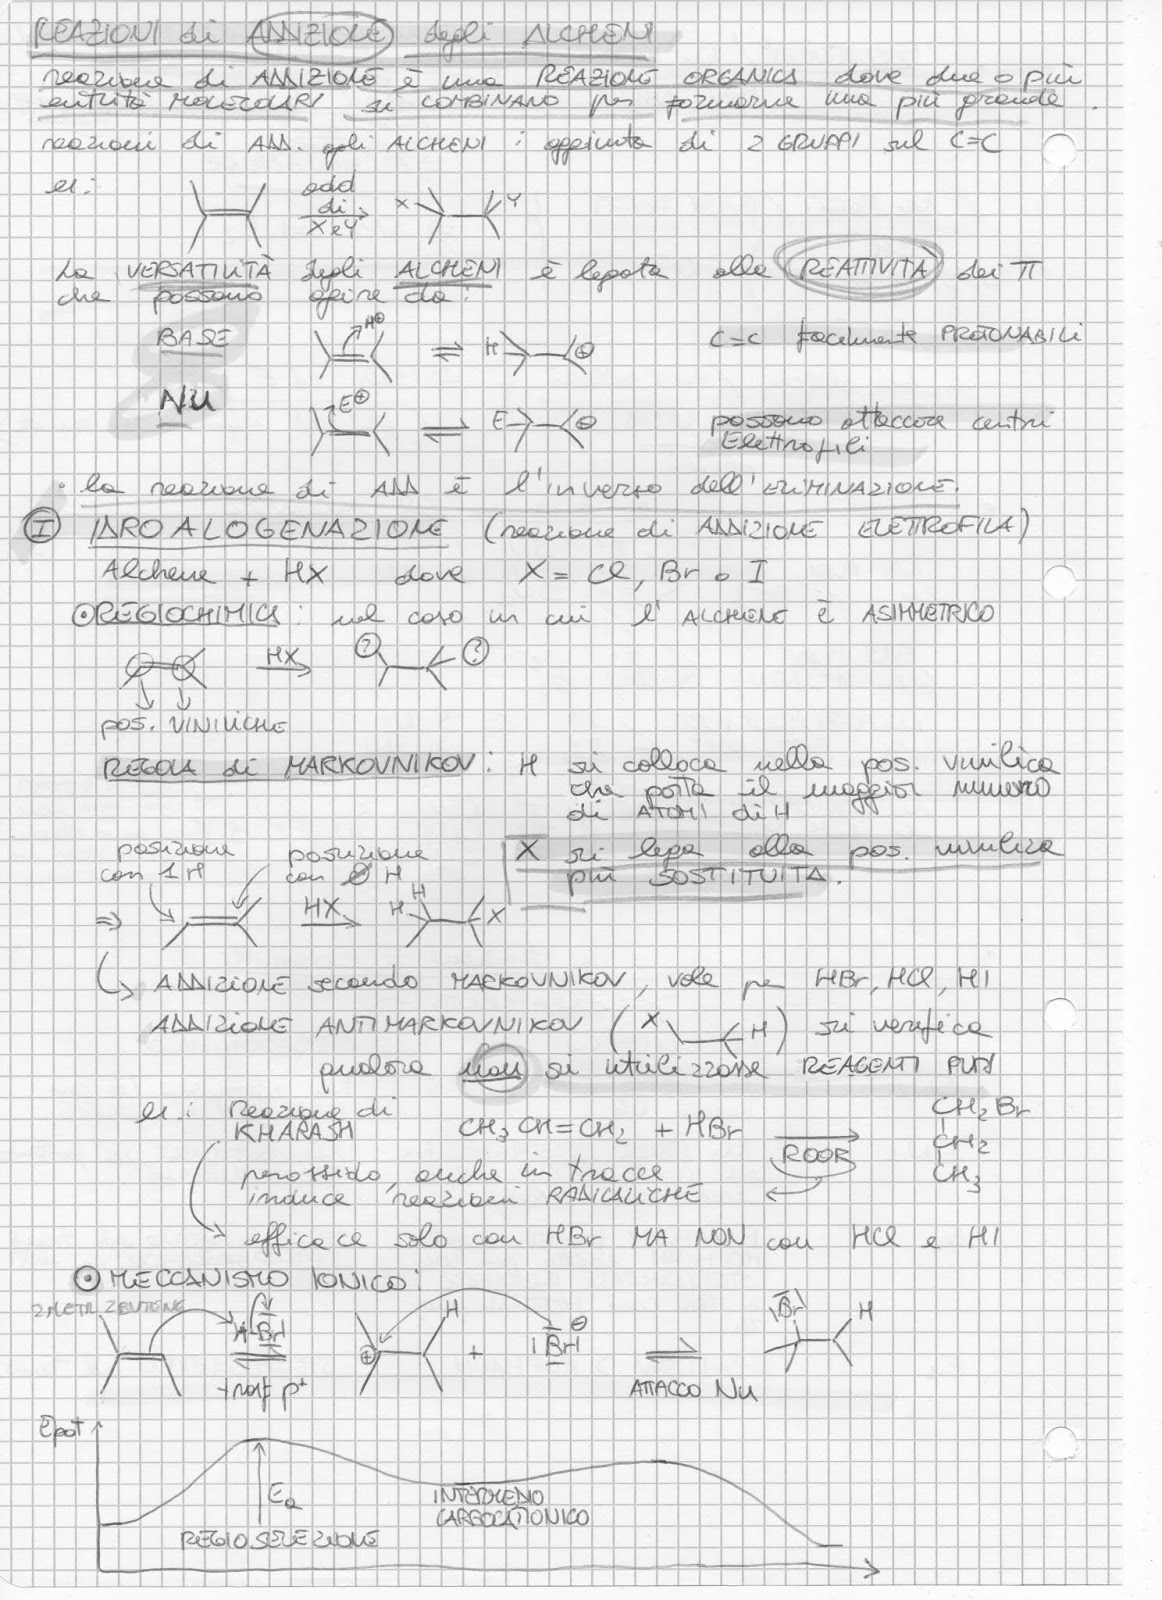 REAZIONI di ADDIZIONE degli ALCHENI
reazione di ADDIZIONE è una REAZIONE ORGANICA dove due o più
entità MOLECOLARI si COMBINANO per formarne una più grande.
reazioni di ADD. agli ALCHENI: aggiunta di 2 GRUPPI sul C=C
es:
add
di
X e Y
X Y
La VERSATILITÀ degli ALCHENI è legata alla REATTIVITÀ dei π
che possono agire da:
BASE H⊕ ⇌ H ⊕ C=C facilmente PROTONABILI
NU E⊕ ⇌ E ⊕ possono attaccare centri
Elettrofili
· la reazione di ADD è l'inverso dell'ELIMINAZIONE.
I IDROALOGENAZIONE (reazione di ADDIZIONE ELETTROFILA)
Alchene + HX dove X = Cl, Br o I
REGIOCHIMICA: nel caso in cui l'ALCHENE è ASIMMETRICO
HX ? ?
pos. VINILICHE
REGOLA di MARKOVNIKOV: H si colloca nella pos. vinilica
che porta il maggior numero
di ATOMI di H
X si lega alla pos. vinilica
più SOSTITUITA.
posizione con 1 H
posizione con 0 H
⇒ HX H H X
ADDIZIONE secondo MARKOVNIKOV, vale per HBr, HCl, HI
ADDIZIONE ANTIMARKOVNIKOV (X H) si verifica
qualora non si utilizzasse REAGENTI PURI
es: Reazione di
KHARASH
CH3 CH=CH2 + HBr → ROOR
CH2 Br
CH2
CH3
perossido, anche in tracce
induce reazioni RADICALICHE
efficace solo con HBr MA NON con HCl e HI
MECCANISMO IONICO:
2 METIL 2 BUTENE
H-Br ⇌ ⊕ H + |Br| ⊖ ⇌ |Br| H
trasf p+
ATTACCO Nu
Epot
Ea
INTERMEDIO
CARBOCATIONICO
REGIOSELEZIONE